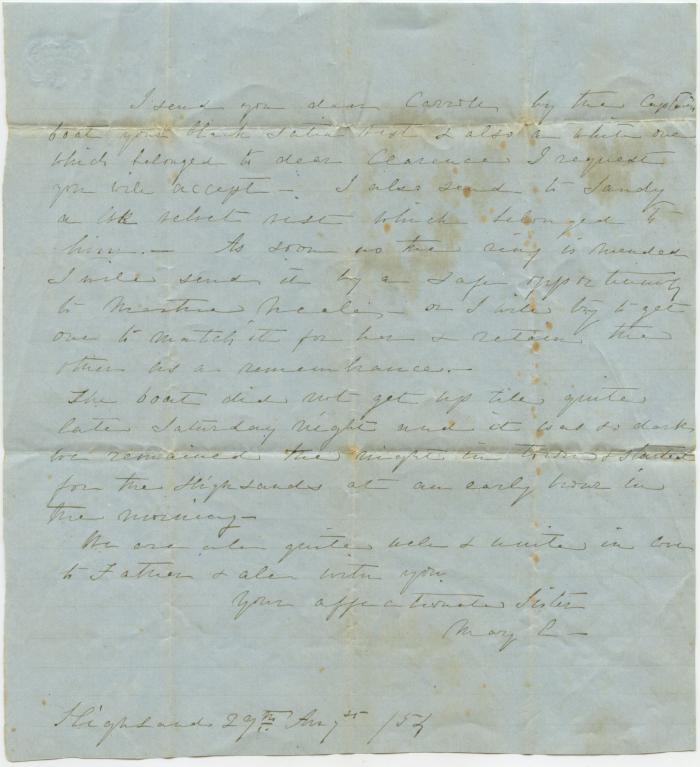 I send you dear Carroll by the Captain
boat your black Satin vest & also a white one
which belonged to dear Clarence I request
you will accept — I also send to Sandy
a blk velvet vest which belonged to
him. — As soon as the ring is mended
I will send it by a safe opportunity
to Martha — or I will try to get
one to match it for her & retain the
other as a remembrance. —
The boat did not get up till quite
late Saturday night and it was so dark
we remained the night in town & started
for the Highlands at an early hour in
the morning —
We are all quite well & unite in love
to Father & all with you
Your affectionate Sister
Mary E —
Highlands 29th Augst